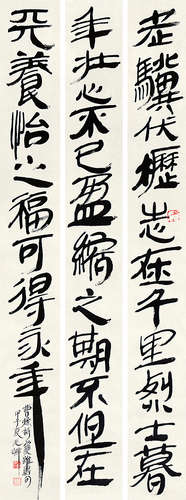 老驥伏櫪志在千里烈士暮
年壯心不已盈縮之期不但在
天養怡之福可得永年
曹操詩龜雖壽句
甲午夏